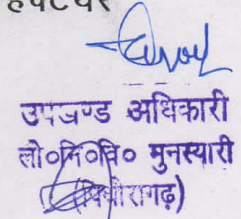 उपखण्ड अधिकारी
लो०नि०वि० मुनस्यारी
(पिथौरागढ़)